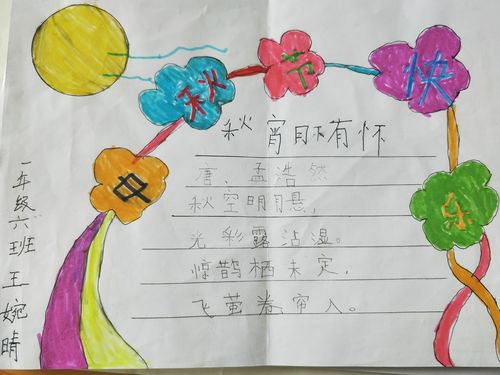 中秋节快乐
秋宵月下有怀
唐、孟浩然
秋空明月悬,
光彩露沾湿。
惊鹊栖未定,
飞萤卷帘入。
一年级六班 王婉晴